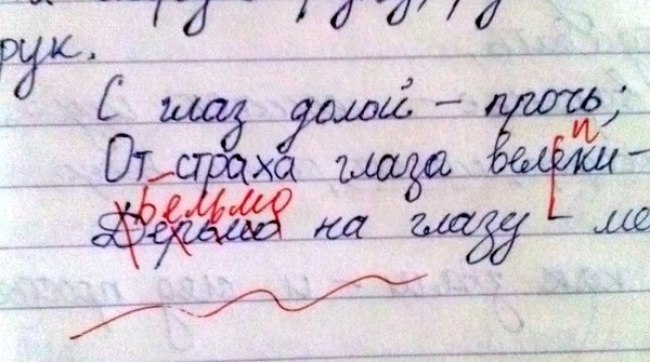 рук.
С глаз долой – прочь;
От страха глаза велеки –
Бельмо
Дерьмо на глазу – ме